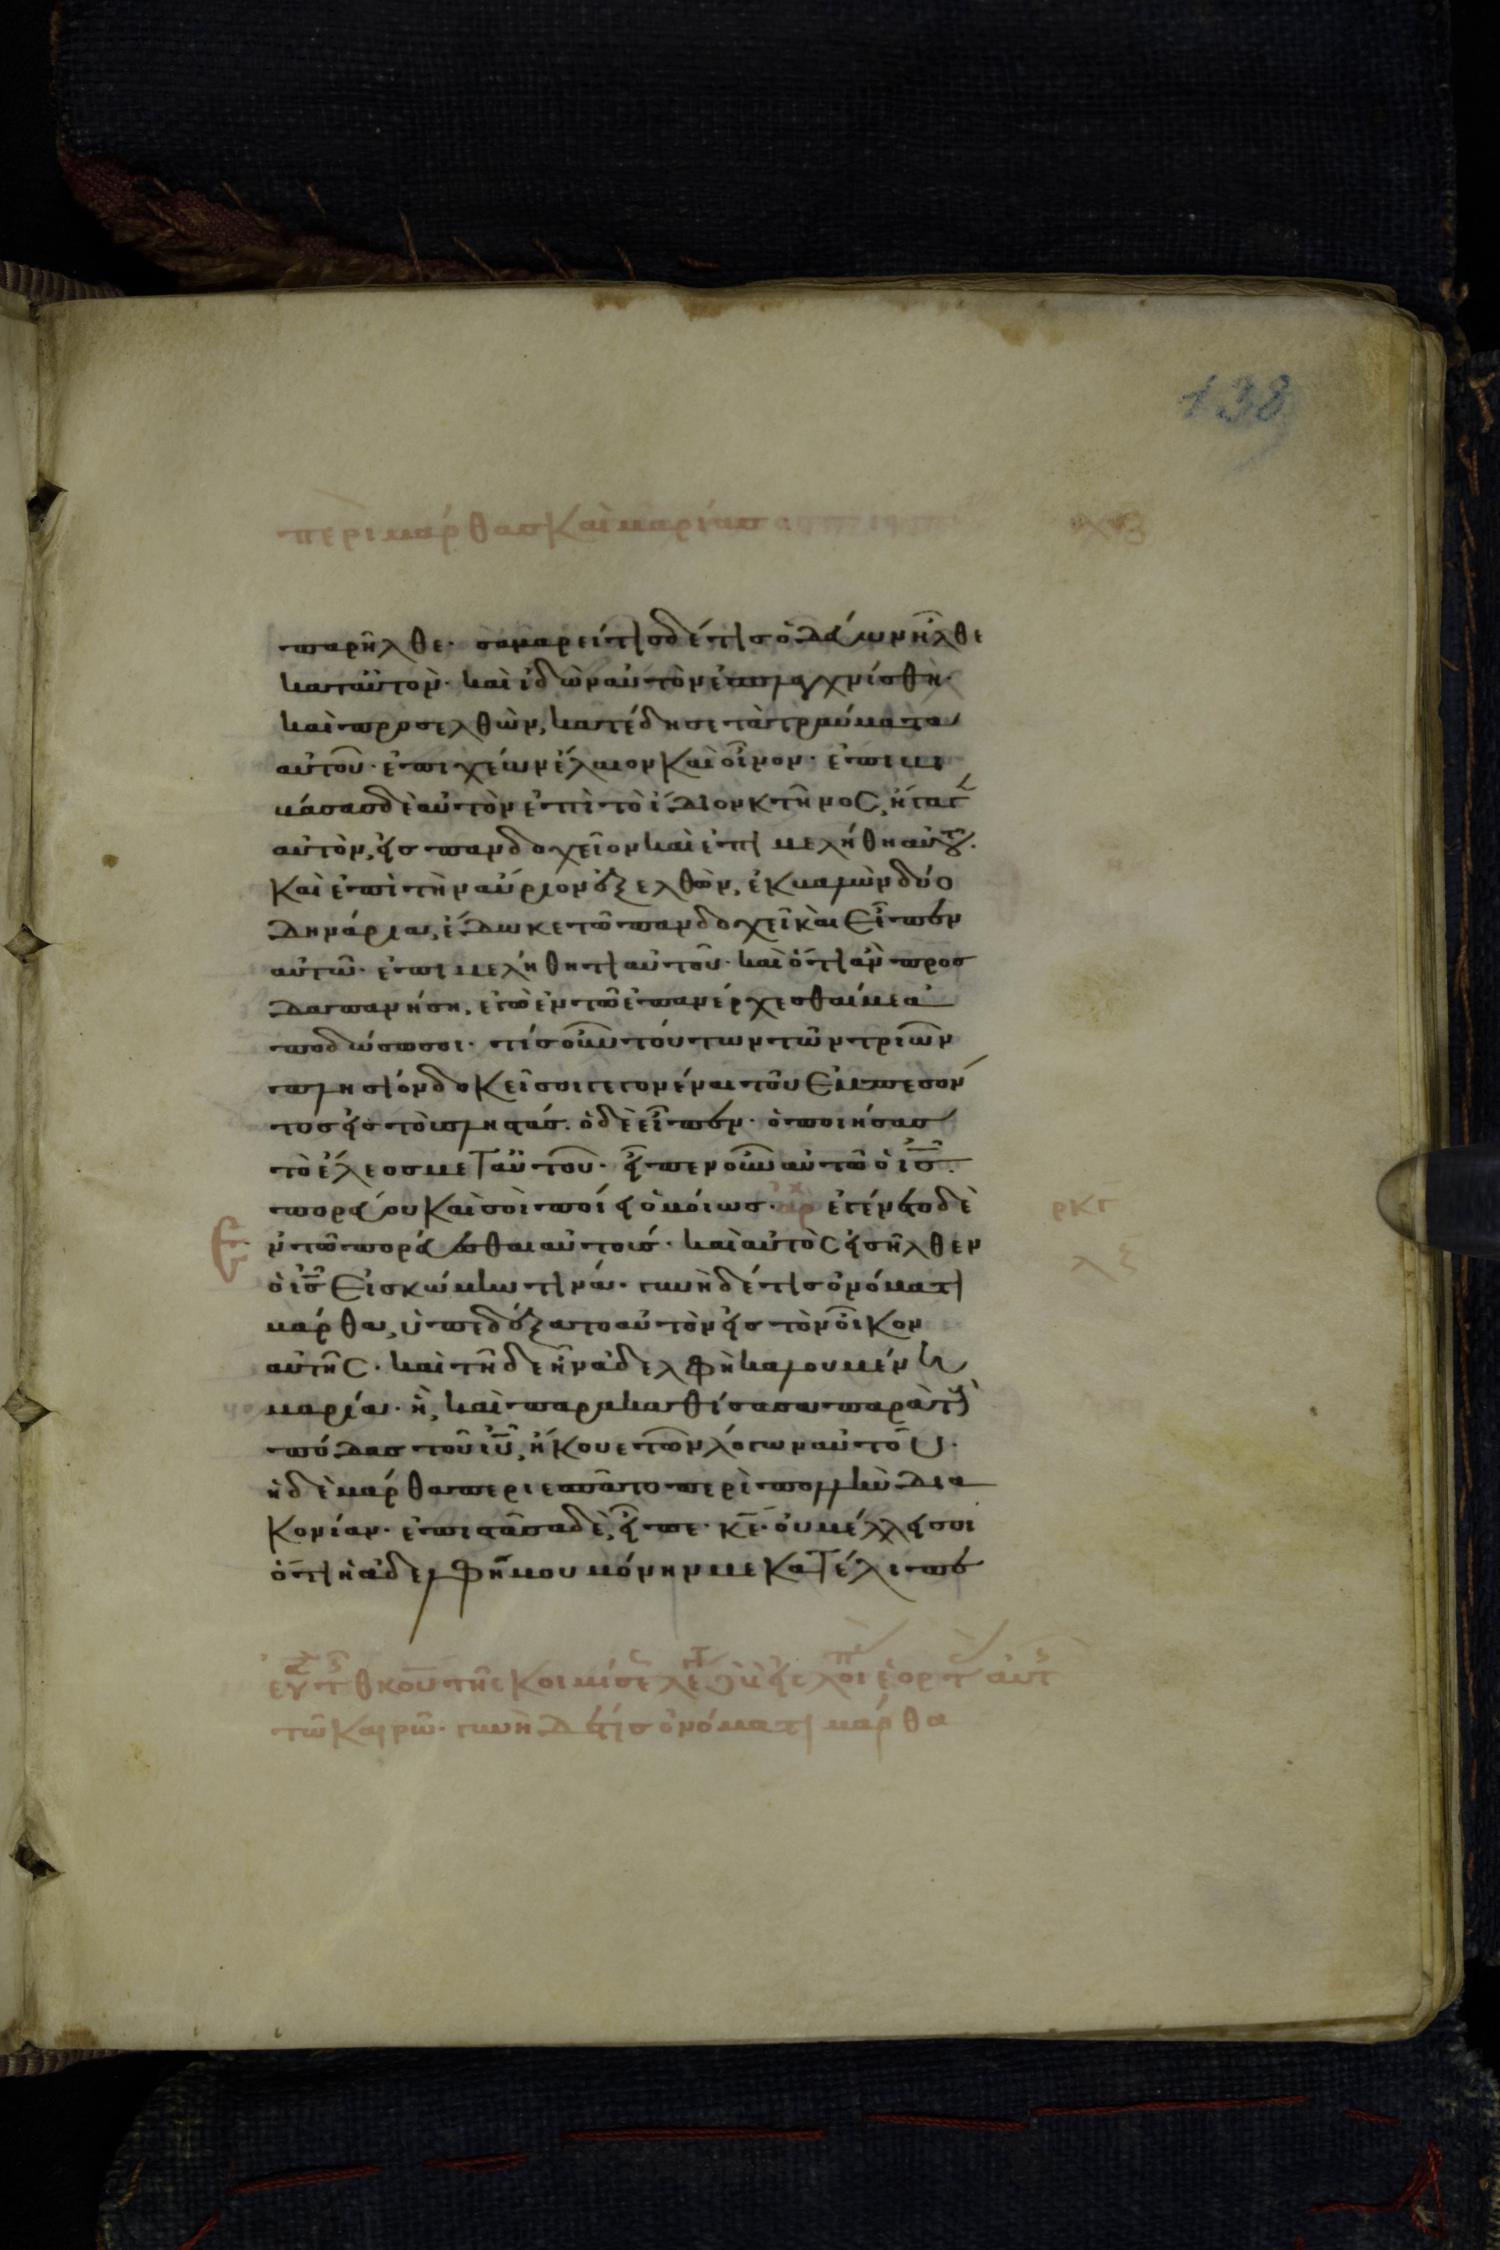 138
περι μάρθας Καὶ μαρίας
παρῆλθε· σαμαρείτης δέ τις ὁδεύων ἦλθε
κατ αὐτὸν· καὶ ἰδὼν αὐτὸν ἐσπλαγχνίσθη·
καὶ προσελθὼν, κατέδησε τὰ τραύματα
αὐτοῦ· ἐπιχέων ἔλαιον καὶ οἶνον· ἐπιβι
βάσας δὲ αὐτὸν ἐπὶ τὸ ἴδιον κτῆνος, ἤγαγ
αὐτὸν, εἰς πανδοχεῖον καὶ ἐπεμελήθη αὐτοῦ.
Καὶ ἐπὶ τὴν αὔριον ἐξελθὼν, ἐκβαλὼν δύο
δηνάρια, ἔδωκε τῶ πανδοχεῖ καὶ εἶπεν
αὐτῶ· ἐπιμελήθητι αὐτοῦ· καὶ ὅτι ἂν προσ
δαπανήση, ἐγὼ ἐν τῶ ἐπανέρχεσθαί με ἀ
ποδώσω σοι· τίς οὖν τούτων τῶν τριῶν
πλησίον δοκεῖ σοι γεγονέναι τοῦ ἐμπεσόν
τος εἰς τοὺς ληστάς. ὁ δὲ εἶπεν· ὁ ποιήσας
τὸ ἔλεος μετ αὐτοῦ· εἶπεν οὖν αὐτῶ ὁ ις.
πορεύου καὶ σὺ ποίει ὁμοίως· ἀρχ ἐγένετο δὲ
ἐν τῶ πορεύεσθαι αὐτοὺς· καὶ αὐτὸς εἰσῆλθεν
ὁ ις εἰς κώμην τινά· γυνὴ δέ τις ὀνόματι
μάρθα, ὑπεδέξατο αὐτὸν εἰς τὸν οἶκον
αὐτῆς· καὶ τῆδε ἦν ἀδελφὴ καλουμένη
μαρία· ἣ, καὶ παρακαθίσασα παρὰ τοὺς
πόδας τοῦ ιυ, ἤκουε τῶν λόγων αὐτοῦ·
ἡ δὲ μάρθα περιεσπᾶτο περὶ πολλὴν δια
κονίαν· ἐπιστᾶσα δὲ, εἶπε· κε· οὐ μέλει σοι
ὅτι ἡ ἀδελφή μου μόνην με κατέλιπε
ρκγ
τῶ καιρῶ· γυνὴ δέ τις ὀνόματι μάρθα